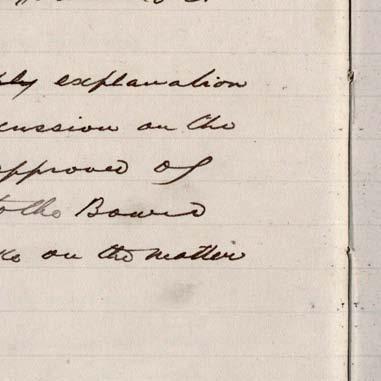 ply explanation
cussion on the
approved of
to the Board
ke on the matter